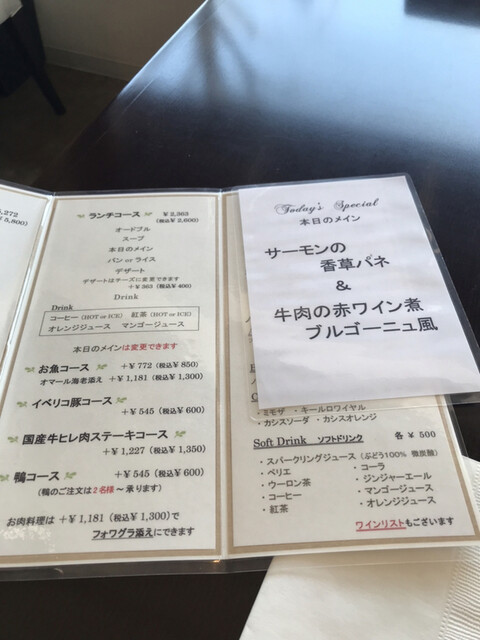 ,272
¥5,800)
ランチコース ¥ 2,363
(税込¥ 2,600)
オードブル
スープ
本日のメイン
パン or ライス
デザート
デザートはチーズに変更できます
+¥363 (税込¥400)
Drink
Drink
コーヒー (HOT or ICE) 紅茶 (HOT or ICE)
オレンジジュース マンゴージュース
本日のメインは変更できます
お魚コース +¥772 (税込¥ 850)
オマール海老添え +¥ 1,181 (税込¥ 1,300)
イベリコ豚コース
+¥ 545 (税込¥ 600)
国産牛ヒレ肉ステーキコース
+¥ 1,227 (税込¥ 1,350)
鴨コース +¥ 545 (税込¥ 600)
(鴨のご注文は2名様～承ります)
お肉料理は +¥ 1,181 (税込¥ 1,300)で
フォワグラ添えにできます
Today's Special
本日のメイン
サーモンの
香草パネ
&
牛肉の赤ワイン煮
ブルゴーニュ風
・ミモザ ・キールロワイヤル
・カシスソーダ ・カシスオレンジ
Soft Drink ソフトドリンク 各 ¥ 500
・スパークリングジュース (ぶどう100% 微炭酸)
・ペリエ ・コーラ
・ウーロン茶 ・ジンジャーエール
・コーヒー ・マンゴージュース
・紅茶 ・オレンジジュース
ワインリストもございます